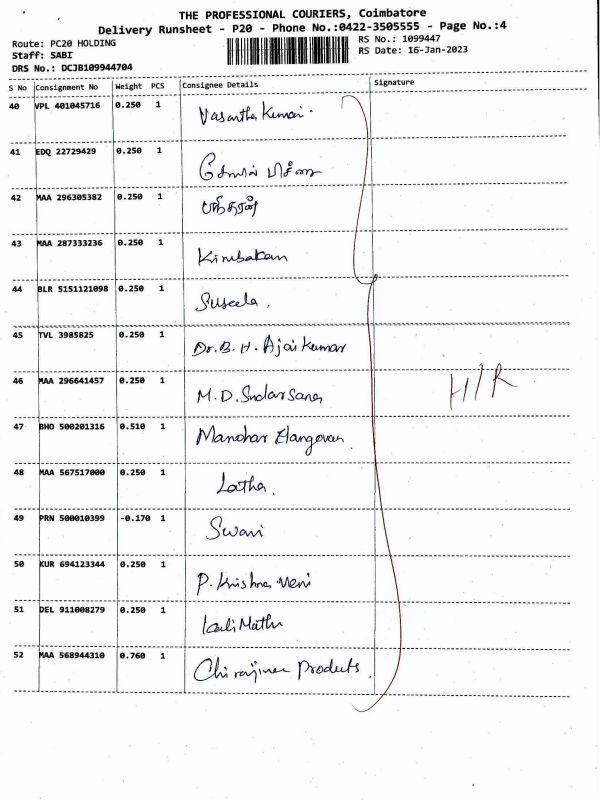 THE PROFESSIONAL COURIERS, Coimbatore
Delivery Runsheet - P20 - Phone No.:0422-3505555 - Page No.:4
Route: PC20 HOLDING
RS No.: 1099447
Staff: SABI
RS Date: 16-Jan-2023
DRS No.: DCJB109944704
S No Consignment No Weight PCS Consignee Details Signature
40 VPL 401045716 0.250 1 Vasantha Kumar.
41 EDQ 22729429 0.250 1
42 MAA 296305382 0.250 1
43 MAA 287333236 0.250 1 Kirubakaran
44 BLR 5151121098 0.250 1 Suseela.
45 TVL 3985825 0.250 1 Dr. B. H. Ajai Kumar
46 MAA 296641457 0.250 1 M. D. Sudarsanan
H/R
47 BHO 500201316 0.510 1 Manohar Elangovan.
48 MAA 567517000 0.250 1 Latha.
49 PRN 500010399 -0.170 1 Swari
50 KUR 694123344 0.250 1 P. Krishna Veni
51 DEL 911008279 0.250 1 Kali Mathu
52 MAA 568944310 0.760 1 Products.